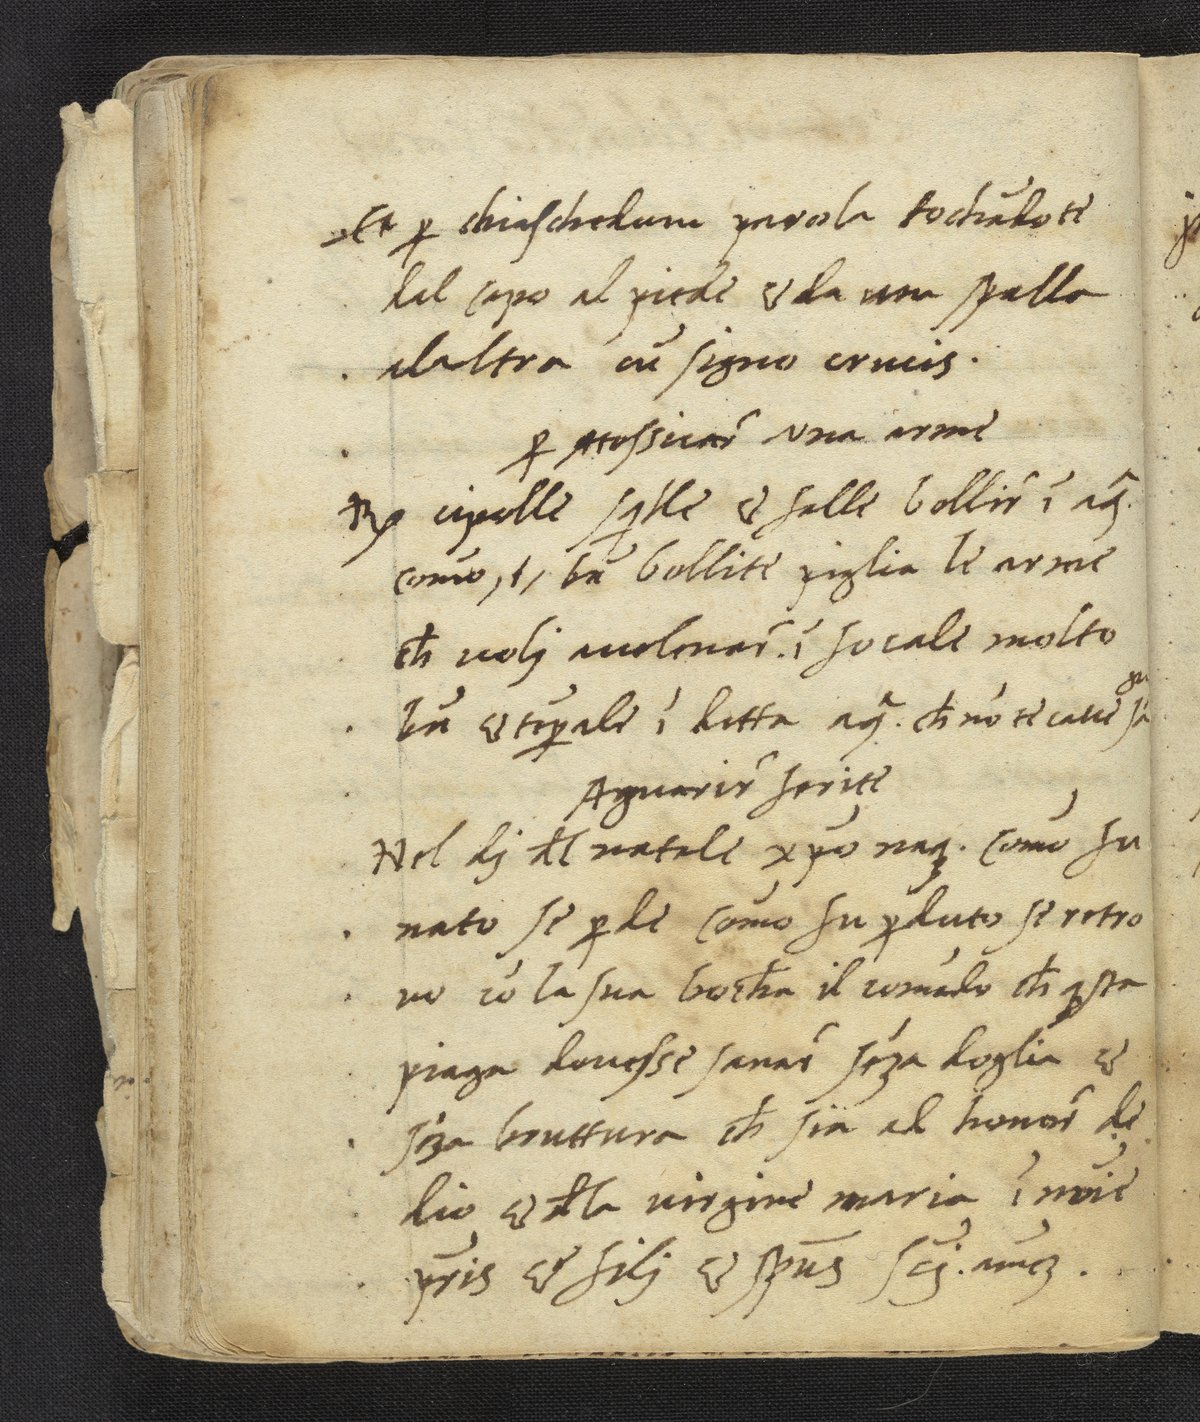 Et p̱ chiaschedum parola tochādote
dal capo al piede & da una spalla
alaltra cū signo crucis.
p̱ atossicar̃ una arme
Rx cipolle sq̃lle & salle bollir̃ ĩ aq̃.
como, s, bñ bollite piglia le arme
ch̄ volj avelenar̃. ĩ focale molto
bñ & tēp̱ale ĩ ditta aq̃. ch̄ nō te cave
Aguarir̃ ferite
Nel dj d̄l natale xp̄o naq̃. como fu
nato se p̱de como fu p̱duto se retro
vo cō la sua boch̄a il comādo ch̄ q̃sta
piaga dovesse sanar̃ sēza doglia &
sēza bruttura ch̄ sia ad honor̃ de
dio & d̄la virgine maria ĩ noīe
pr̄is & filj & sp̄us scj̄. amē.